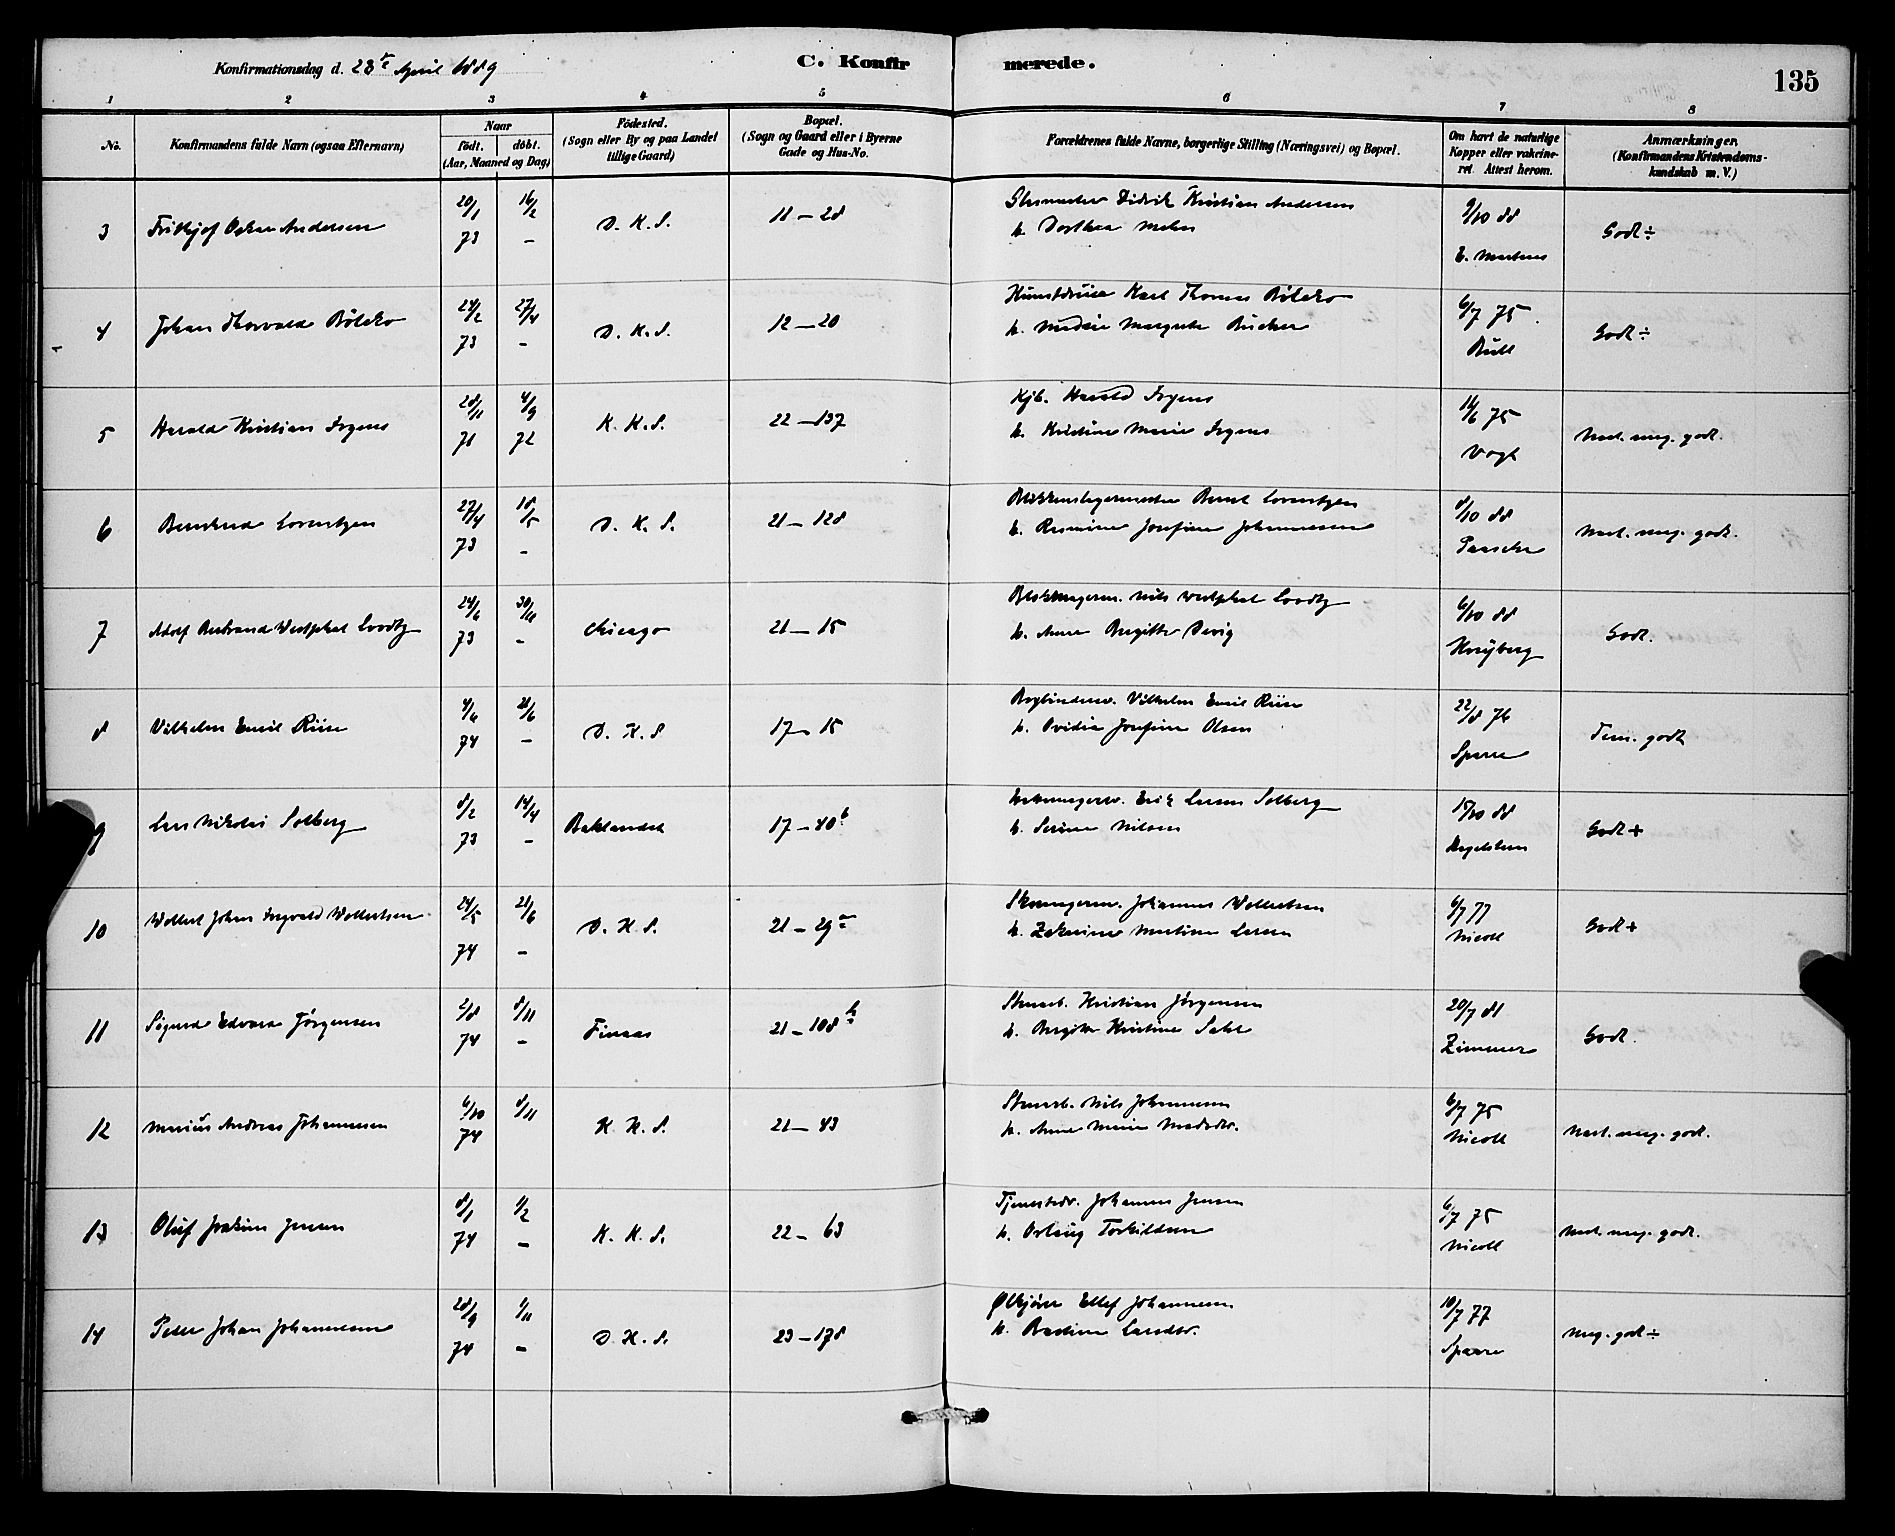 Konfirmationsdag d. 28de April 1889 C. Konfirmerede. 135
1 2 3 4 5 6 7 8
No. Konfirmandens fulde Navn (ogsaa Efternavn) Naar födt. döbt. (Aar, Maaned og Dag) Födested. (Sogn eller By og paa Landet tillige Gaard) Bopæl. (Sogn og Gaard eller i Byerne Gade og Hus-No. Forældrenes fulde Navne, borgerlige Stilling (Næringsvei) og Bopæl. Om havt de naturlige Kopper eller vakcineret. Attest herom. Anmærkninger. (Konfirmandens Kristendomskundskab m. V.)
3 Frithjof Oskar Andersen 20/1 73 16/2 - D. K. S. 11-28 Didrik Kristian Andersen
h. Dorthea 9/10 88 E. Martens Godt ÷
4 Johan Thorvald 24/2 73 27/4 - D. K. S. 12-20 Karl Thomas
h. Margrete 6/7 75 Bull Godt ÷
5 Harald Kristian Irgens 28/11 71 4/9 72 K. K. S. 22-137 Kjb. Harald Irgens
h. Kristine Marie Irgens 14/6 75 Vogt Next. meg. godt.
6 Lorentzen 27/4 73 18/5 - D. K. S. 21-128 Blikkenslagermester Bernt Lorentzen
h. Rasmine Josefine Johannesen 8/10 88 Paasche Next. meg. godt.
7 Adolf Bertrand Westphal Loodtz 24/6 73 30/11 - Chicago 21-15 Nils Westphal Loodtz
h. Anne Birgitte Devig 6/10 88 Godt.
8 Vilhelm Emil Riise 4/4 74 21/6 - D. K. S 17-15 Bogbinderm. Vilhelm Emil Riise
h. Ovidia Josefine Olsen 22/8 76 Sparre Tem. godt
9 Lars Nikolai Solberg 8/2 73 14/4 - Baklandet 17-40b Erik Larsen Solberg
h. Serine Nilsen 15/10 88 Godt +
10 Wollert Johan Ingvald Wollertsen 24/5 74 21/6 - D. K. S. 21-29 Skomagerm. Johannes Wollertsen
h. Zakarine Martine Larsen 6/7 77 Nicoll Godt +
11 Sigurd Edvard Jørgensen 2/8 74 8/11 - Finaas 21-108b Kristian Jørgensen
h. Birgitte Kristine 20/7 81 Zimmer Godt.
12 Marius Andreas Johannesen 6/10 74 8/11 K. K. S. 21-43 Nils Johannesen
h. Anne Marie Madsdtr. 6/7 75 Nicoll Next. meg. godt.
13 Oluf Joakim Jensen 8/1 74 1/2 - K. K. S. 22-63 Johannes Jensen
h. Torkildsen 6/7 75 Nicoll Next. meg. godt.
14 Peter Johan Johannesen 28/9 74 1/11 - D. K. S. 23-178 Ølkjører Ellef Johannesen
h. Larsdtr. 10/7 77 Sparre Meg. godt ÷